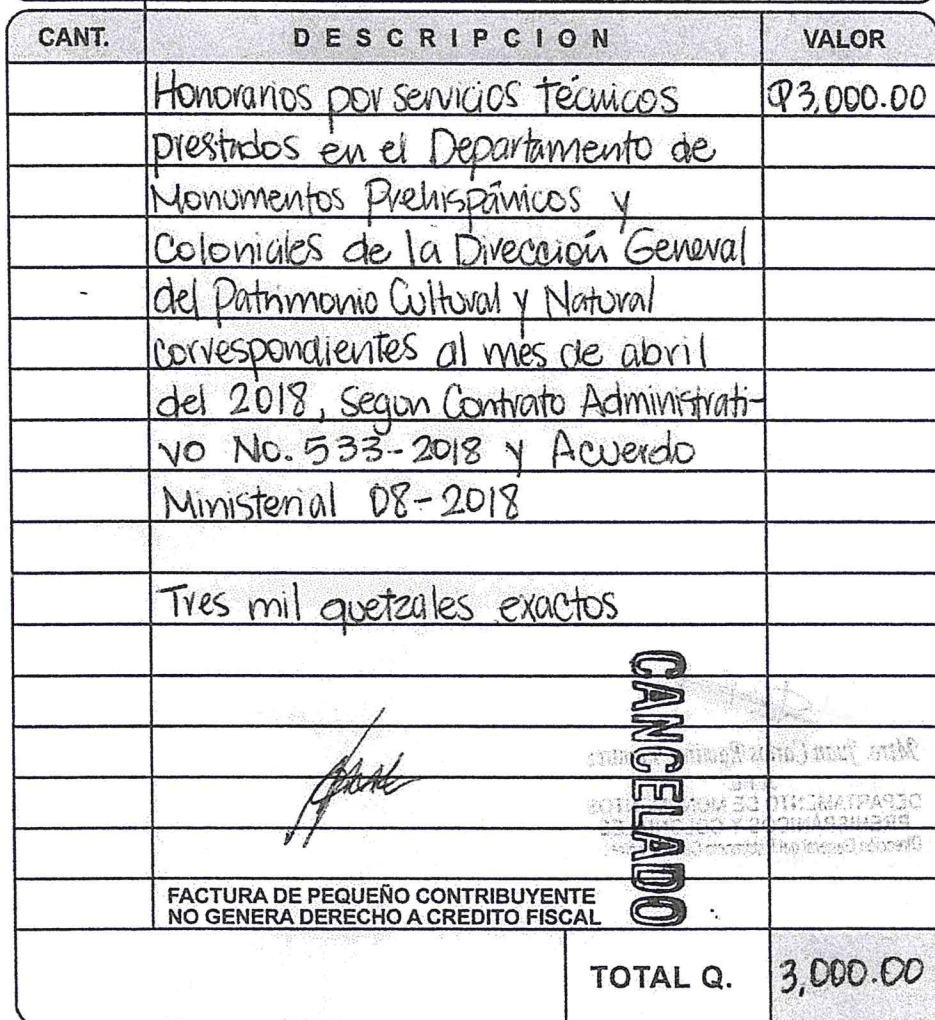 CANT. DESCRIPCION VALOR
Honorarios por servicios técnicos Q3,000.00
prestados en el Departamento de
Monumentos Prehispánicos y
Coloniales de la Dirección General
del Patrimonio Cultural y Natural
correspondientes al mes de abril
del 2018, Segun Contrato Administrati-
vo No. 533-2018 y Acuerdo
Ministerial 08-2018
Tres mil quetzales exactos
CANCELADO
Mtro. Juan Carlos
DEPARTAMENTO DE
FACTURA DE PEQUEÑO CONTRIBUYENTE
NO GENERA DERECHO A CREDITO FISCAL
TOTAL Q. 3,000.00